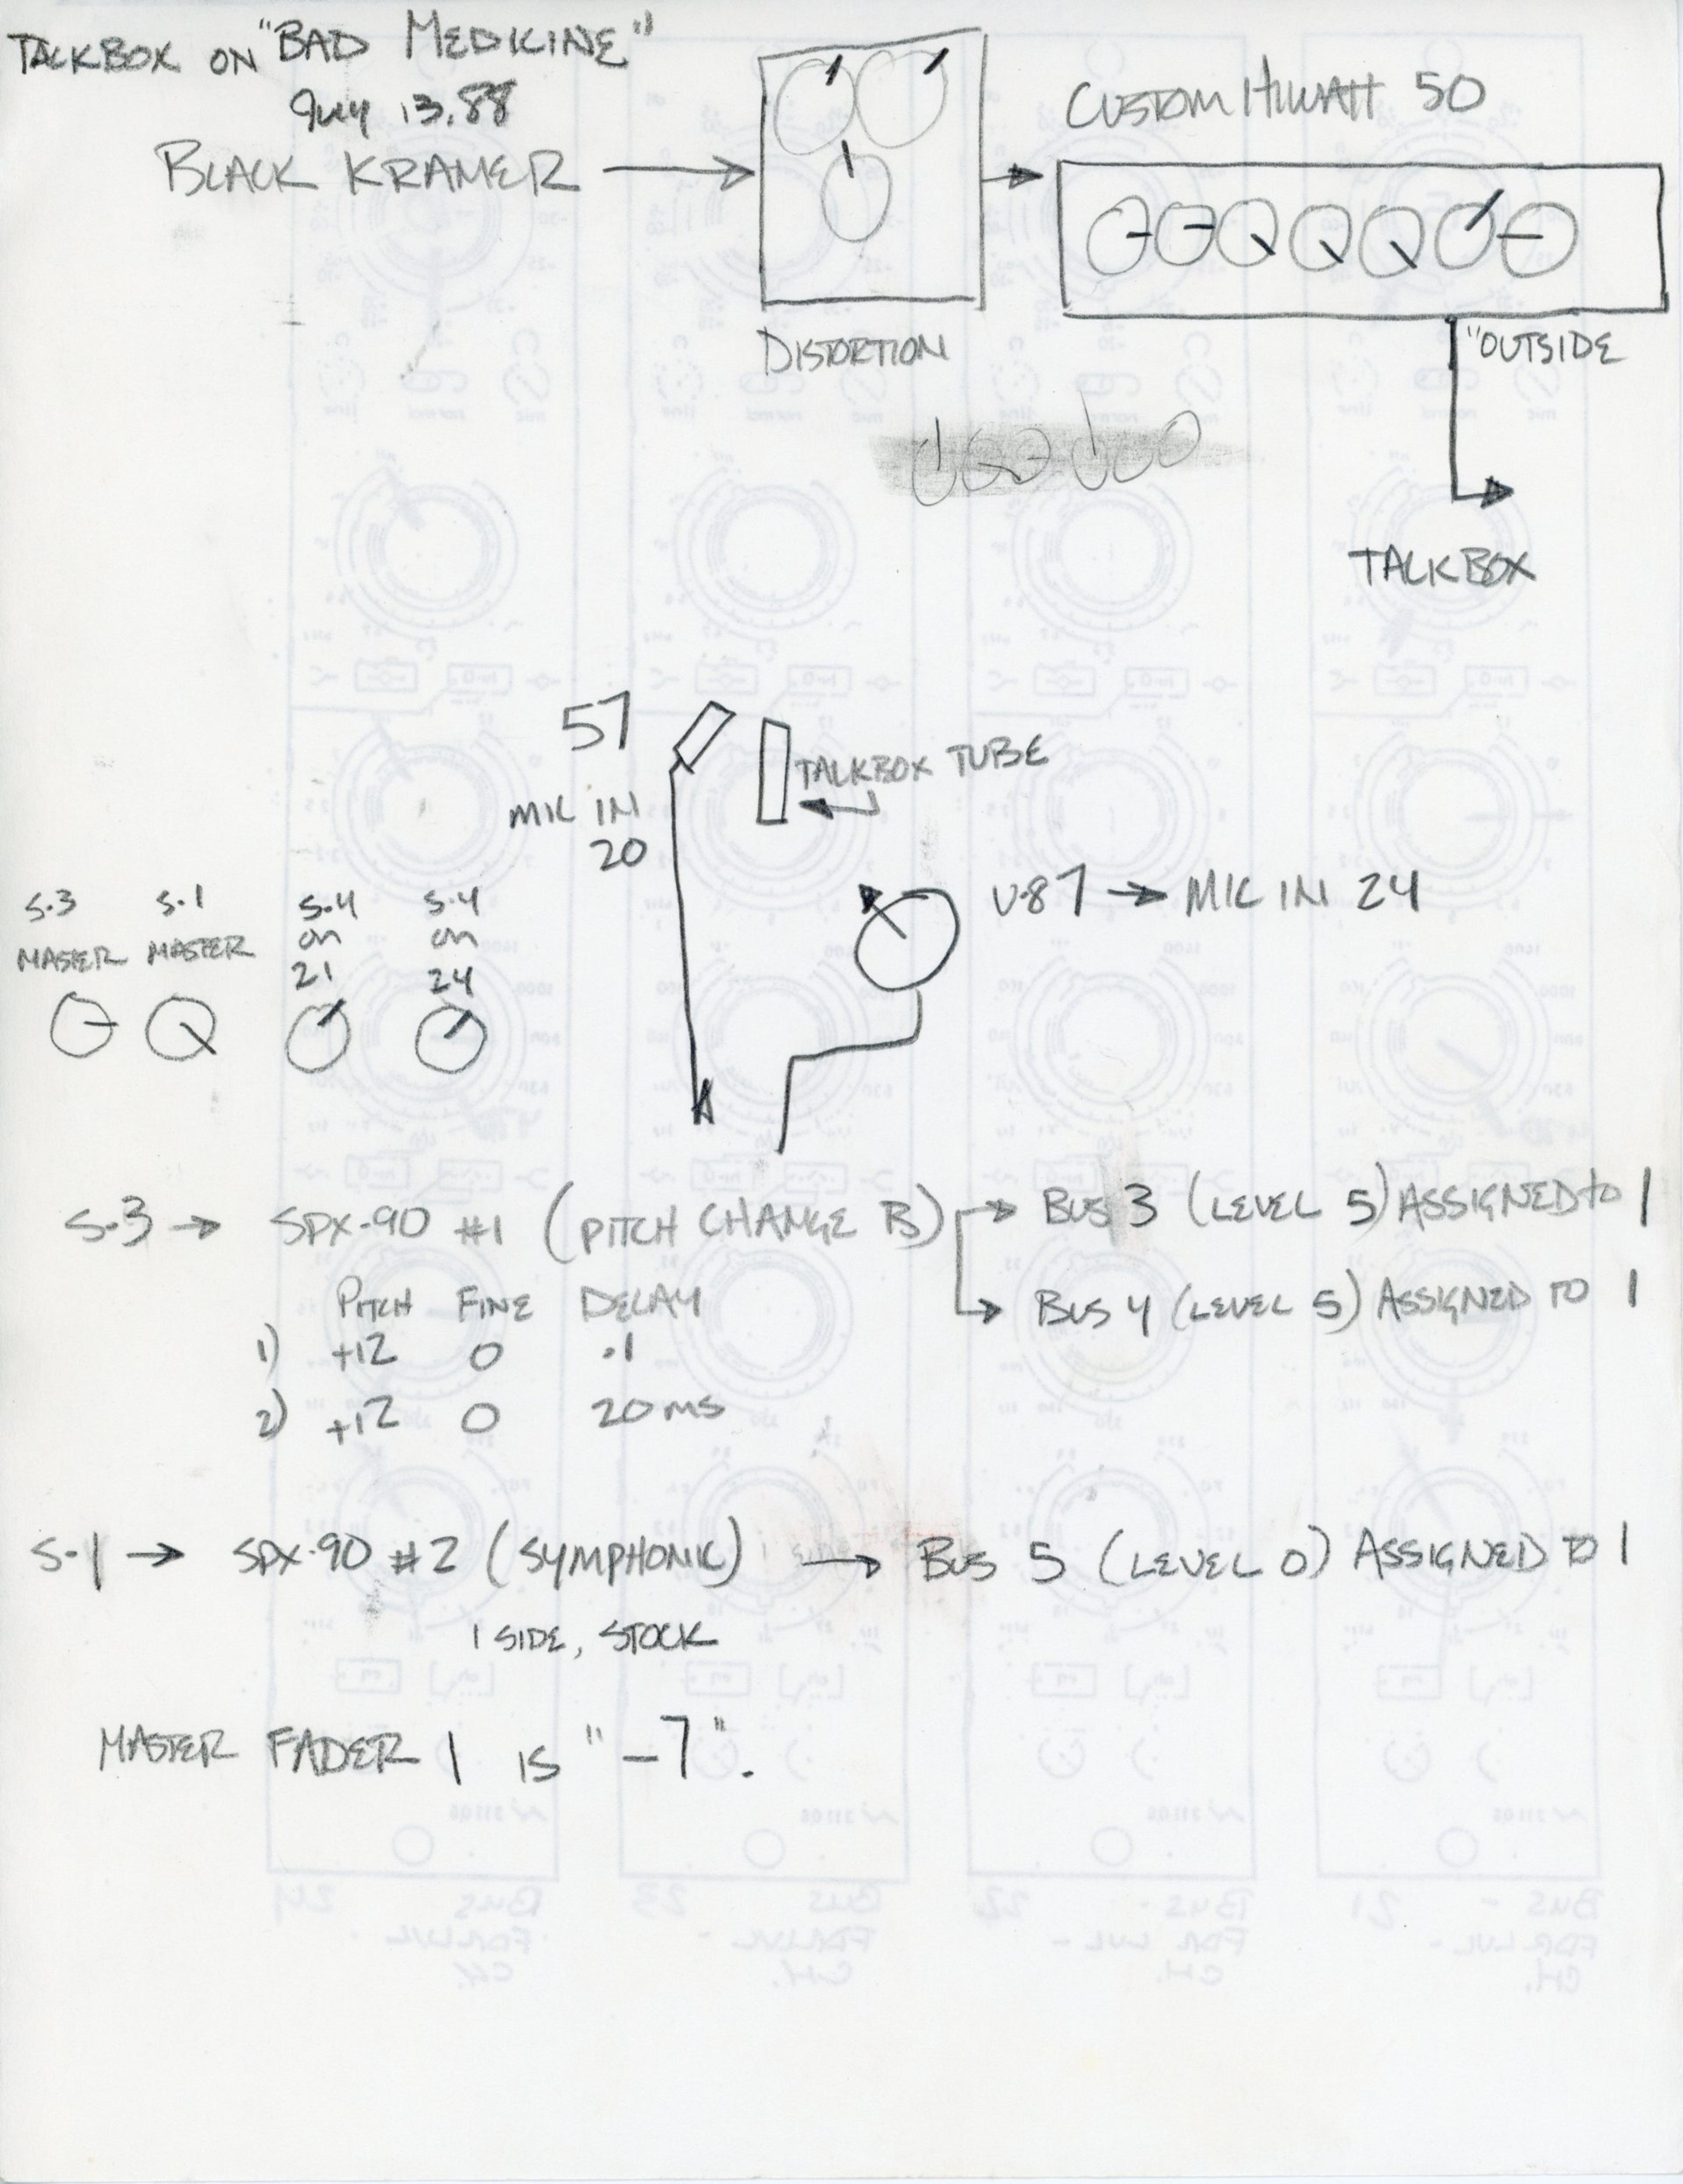 TALKBOX ON "BAD MEDICINE"
July 13.88
BLACK KRAMER
CUSTOM HIWATT 50
DISTORTION
"OUTSIDE
TALKBOX
57
MIC IN
20
TALKBOX TUBE
U-87 → MIC IN 24
S.3 S.1 S.4 S.4
MASTER MASTER on on
21 24
S.3 → SPX-90 #1 (PITCH CHANGE B) → BUS 3 (LEVEL 5) ASSIGNED to 1
→ BUS 4 (LEVEL 5) ASSIGNED TO 1
PITCH FINE DELAY
1) +12 0 .1
2) +12 0 20 ms
S.1 → SPX-90 #2 (SYMPHONIC) → BUS 5 (LEVEL 0) ASSIGNED TO 1
1 SIDE, STOCK
MASTER FADER 1 IS "-7".